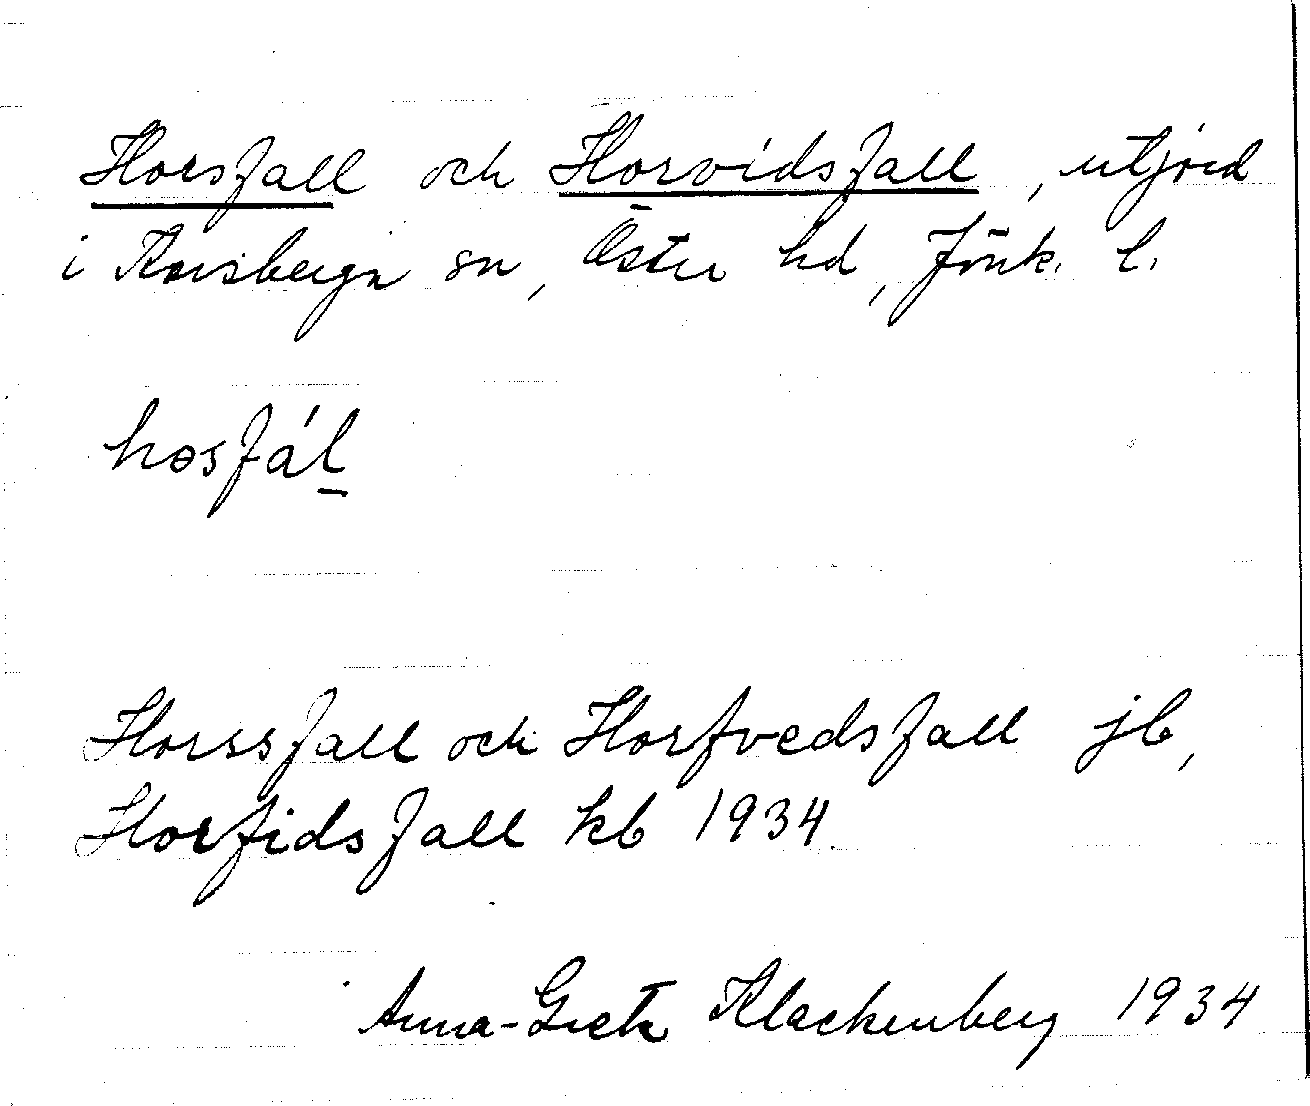 Horsfall och Horvidsfall, utjord
i Korsberga sn, Östra hd, Jönk. l.
hosfál
Horssfall och Horfvedsfall jb,
Horfidsfall kb 1934.
Anna-Greta Klackenberg 1934